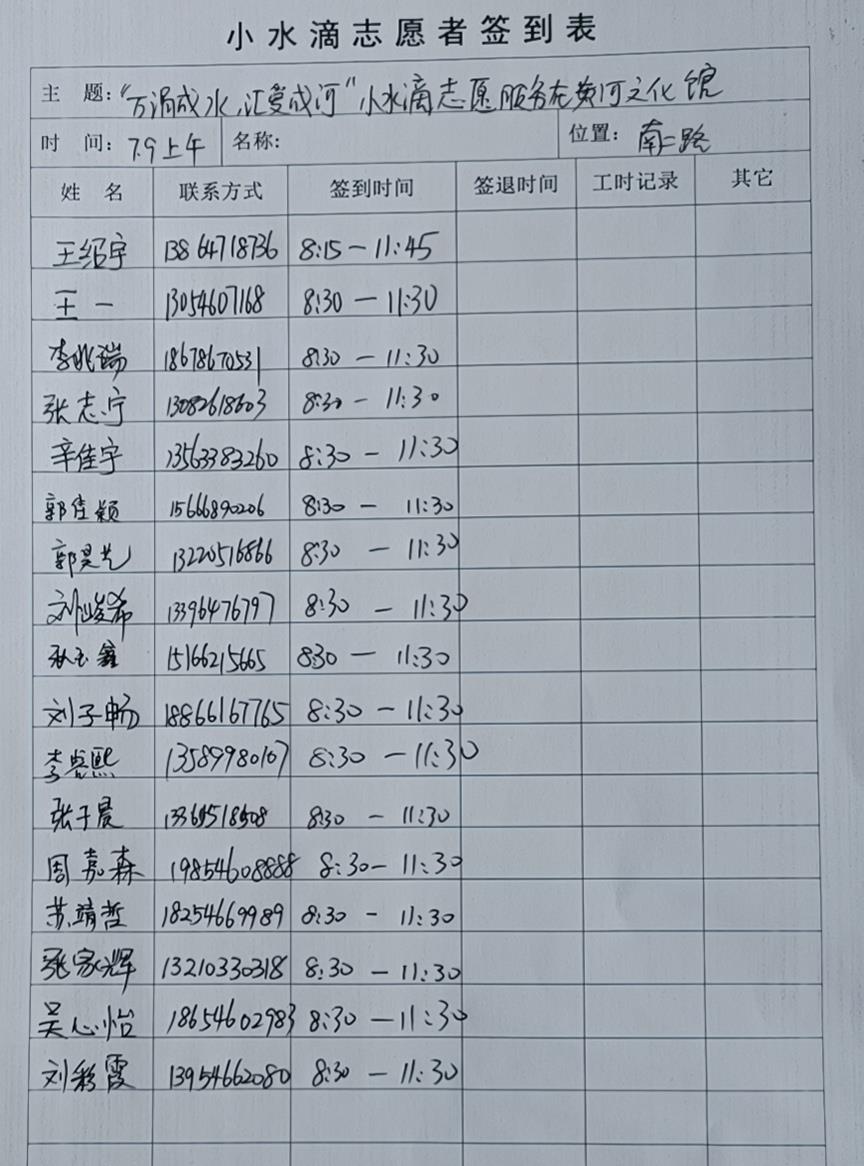 小水滴志愿者签到表
主 题:“万涓成水,汇爱成河”小水滴志愿服务在黄河文化馆
时 间: 7.9上午 名称: 位置: 南二路
姓 名 联系方式 签到时间 签退时间 工时记录 其它
王绍宇 13864718736 8:15-11:45
王一 13054607168 8:30-11:30
李兆瑞 18678670531 8:30-11:30
张志宁 13082618603 8:30-11:30
辛佳宇 13563383260 8:30-11:30
郭佳颖 15666890206 8:30-11:30
郭昊艺 13220516866 8:30-11:30
刘峻希 13396476797 8:30-11:30
玉鑫 15166215665 830-11:30
刘子畅 18866167765 8:30-11:30
李睿熙 13589980107 8:30-11:30
张于晨 8:30-11:30
周嘉森 19854608888 8:30-11:30
苏靖哲 18254669989 8:30-11:30
张家辉 13210330318 8:30-11:30
吴心怡 18654602983 8:30-11:30
刘彩霞 13954662080 8:30-11:30